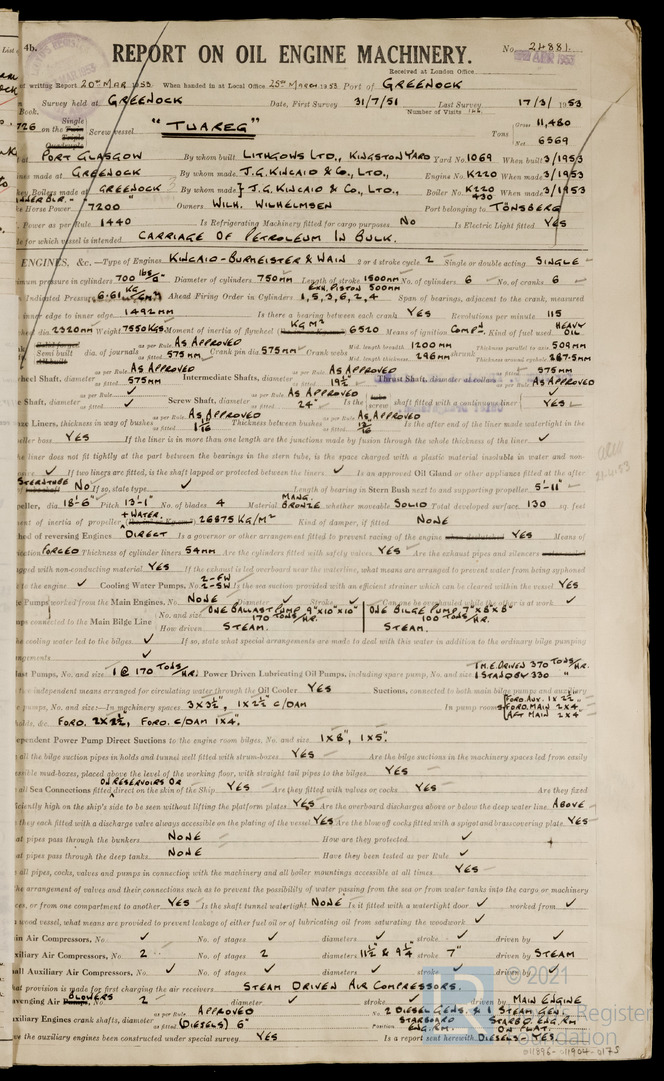 4b.
REPORT ON OIL ENGINE MACHINERY.
No. 24881
Received at London Office
of writing Report 20th MAR 1953 When handed in at Local Office 25th March 1953 Port of GREENOCK
Survey held at GREENOCK Date, First Survey 31/7/51 Last Survey 17/3/1953
Book. Number of Visits
726 on the Single Screw vessel "TUAREG" Tons Gross 11,480
Net 6569
at PORT GLASGOW By whom built LITHGOWS LTD., KINGSTON YARD Yard No. 1069 When built 3/1953
nes made at GREENOCK By whom made J.G. KINCAID & CO., LTD., Engine No. K220 When made 3/1953
key Boilers made at GREENOCK By whom made J.G. KINCAID & CO., LTD., Boiler No. K220 430 When made 3/1953
ke Horse Power 7200 Owners WILH. WILHELMSEN Port belonging to TÖNSBERG
Power as per Rule 1440 Is Refrigerating Machinery fitted for cargo purposes. NO Is Electric Light fitted YES
de for which vessel is intended CARRIAGE OF PETROLEUM IN BULK.
ENGINES, &c.—Type of Engines KINCAID-BURMEISTER & WAIN 2 or 4 stroke cycle 2 Single or double acting SINGLE
mum pressure in cylinders 700 lbs/□" Diameter of cylinders 750mm Length of stroke 1500mm No. of cylinders 6 No. of cranks 6
EXH. PISTON 500mm
Indicated Pressure 6.61 KG/CM² Ahead Firing Order in Cylinders 1,5,3,6,2,4 Span of bearings, adjacent to the crank, measured
inner edge to inner edge 1492mm Is there a bearing between each crank YES Revolutions per minute 115
heel dia. 2320mm Weight 7550KGS Moment of inertia of flywheel KGM² 6520 Means of ignition COMPN. Kind of fuel used HEAVY OIL.
Semi built dia. of journals as per Rule AS APPROVED as fitted 575mm Crank pin dia 575mm Crank webs Mid. length breadth 1200mm Thickness parallel to axis 509mm
Mid. length thickness 296mm shrunk Thickness around eyehole 287.5mm
heel Shaft, diameter as per Rule AS APPROVED as fitted 575mm Intermediate Shafts, diameter as per Rule AS APPROVED as fitted 19½" Thrust Shaft, diameter at collars as fitted 575mm as per Rule AS APPROVED
e Shaft, diameter as per Rule ✓ as fitted ✓ Screw Shaft, diameter as per Rule AS APPROVED as fitted 24" Is the screw shaft fitted with a continuous liner YES
ze Liners, thickness in way of bushes as per Rule AS APPROVED as fitted 1 1/16 Thickness between bushes as per Rule AS APPROVED as fitted 13/16 Is the after end of the liner made watertight in the
eller boss YES If the liner is in more than one length are the junctions made by fusion through the whole thickness of the liner ✓
he liner does not fit tightly at the part between the bearings in the stern tube, is the space charged with a plastic material insoluble in water and non-
ve ✓ If two liners are fitted, is the shaft lapped or protected between the liners ✓ Is an approved Oil Gland or other appliance fitted at the after
STERNTUBE NO If so, state type ✓ Length of bearing in Stern Bush next to and supporting propeller 5'-11"
peller, dia 18'-6" Pitch 13'-1" No. of blades 4 Material MANG. BRONZE whether moveable SOLID Total developed surface 130 sq. feet
ent of inertia of propeller + WATER. 26875 KG/M² Kind of damper, if fitted NONE
hod of reversing Engines DIRECT Is a governor or other arrangement fitted to prevent racing of the engine YES Means of
ication FORCED Thickness of cylinder liners 54mm Are the cylinders fitted with safety valves YES Are the exhaust pipes and silencers
gged with non-conducting material YES If the exhaust is led overboard near the waterline, what means are arranged to prevent water from being syphoned
to the engine ✓ Cooling Water Pumps, No. 2-FW 2-SW Is the sea suction provided with an efficient strainer which can be cleared within the vessel YES
e Pumps worked from the Main Engines, No. NONE Diameter ✓ Stroke ✓ Can one be overhauled while the other is at work ✓
ps connected to the Main Bilge Line No. and size ONE BALLAST PUMP 9"x10"x10" 170 TONS/HR. ONE BILGE PUMP 7"x8"x8" 100 TONS/HR.
How driven STEAM. STEAM.
he cooling water led to the bilges ✓ If so, state what special arrangements are made to deal with this water in addition to the ordinary bilge pumping
ngements ✓
last Pumps, No. and size 1 @ 170 TONS/HR. Power Driven Lubricating Oil Pumps, including spare pump, No. and size 1 M.E. DRIVEN 370 TONS/HR.
1 STANDBY 330 "
two independent means arranged for circulating water through the Oil Cooler YES Suctions, connected to both main bilge pumps and auxiliary
e pumps, No. and size:—In machinery spaces 3x3½", 1x2½" C/DAM In pump room FORD. AUX. 1x2½" FORD. MAIN 2x4" AFT MAIN 2x4"
holds, &c. FORD. 2x2½", FORD. C/DAM 1x4".
ependent Power Pump Direct Suctions to the engine room bilges, No. and size 1x8", 1x5".
all the bilge suction pipes in holds and tunnel well fitted with strum-boxes YES Are the bilge suctions in the machinery spaces led from easily
ssible mud-boxes, placed above the level of the working floor, with straight tail pipes to the bilges YES
ON RESERVOIRS OR
all Sea Connections fitted direct on the skin of the Ship YES Are they fitted with valves or cocks YES Are they fixed
iciently high on the ship's side to be seen without lifting the platform plates YES Are the overboard discharges above or below the deep water line ABOVE
they each fitted with a discharge valve always accessible on the plating of the vessel YES Are the blow off cocks fitted with a spigot and brass covering plate YES
at pipes pass through the bunkers NONE How are they protected ✓
at pipes pass through the deep tanks NONE Have they been tested as per Rule ✓
all pipes, cocks, valves and pumps in connection with the machinery and all boiler mountings accessible at all times YES
he arrangement of valves and their connections such as to prevent the possibility of water passing from the sea or from water tanks into the cargo or machinery
ces, or from one compartment to another YES Is the shaft tunnel watertight NONE Is it fitted with a watertight door ✓ worked from ✓
wood vessel, what means are provided to prevent leakage of either fuel oil or of lubricating oil from saturating the woodwork ✓
in Air Compressors, No. ✓ No. of stages ✓ diameters ✓ stroke ✓ driven by ✓
xiliary Air Compressors, No. 2 No. of stages 2 diameters 11½" & 9¼" stroke 7" driven by STEAM
all Auxiliary Air Compressors, No. ✓ No. of stages ✓ diameters ✓ stroke ✓ driven by ✓
hat provision is made for first charging the air receivers STEAM DRIVEN AIR COMPRESSORS.
avenging Air BLOWERS No. 2 diameter ✓ stroke ✓ driven by MAIN ENGINE
xiliary Engines crank shafts, diameter as per Rule APPROVED as fitted (DIESELS) 6" No. 2 DIESEL GENS. & 1 STEAM GEN.
Position STARBOARD ENG. RM STARBD. ENG. RM ON FLAT.
ve the auxiliary engines been constructed under special survey YES Is a report sent herewith DIESELS YES
© 2021
Lloyd's Register
Foundation
011896-011904-0175